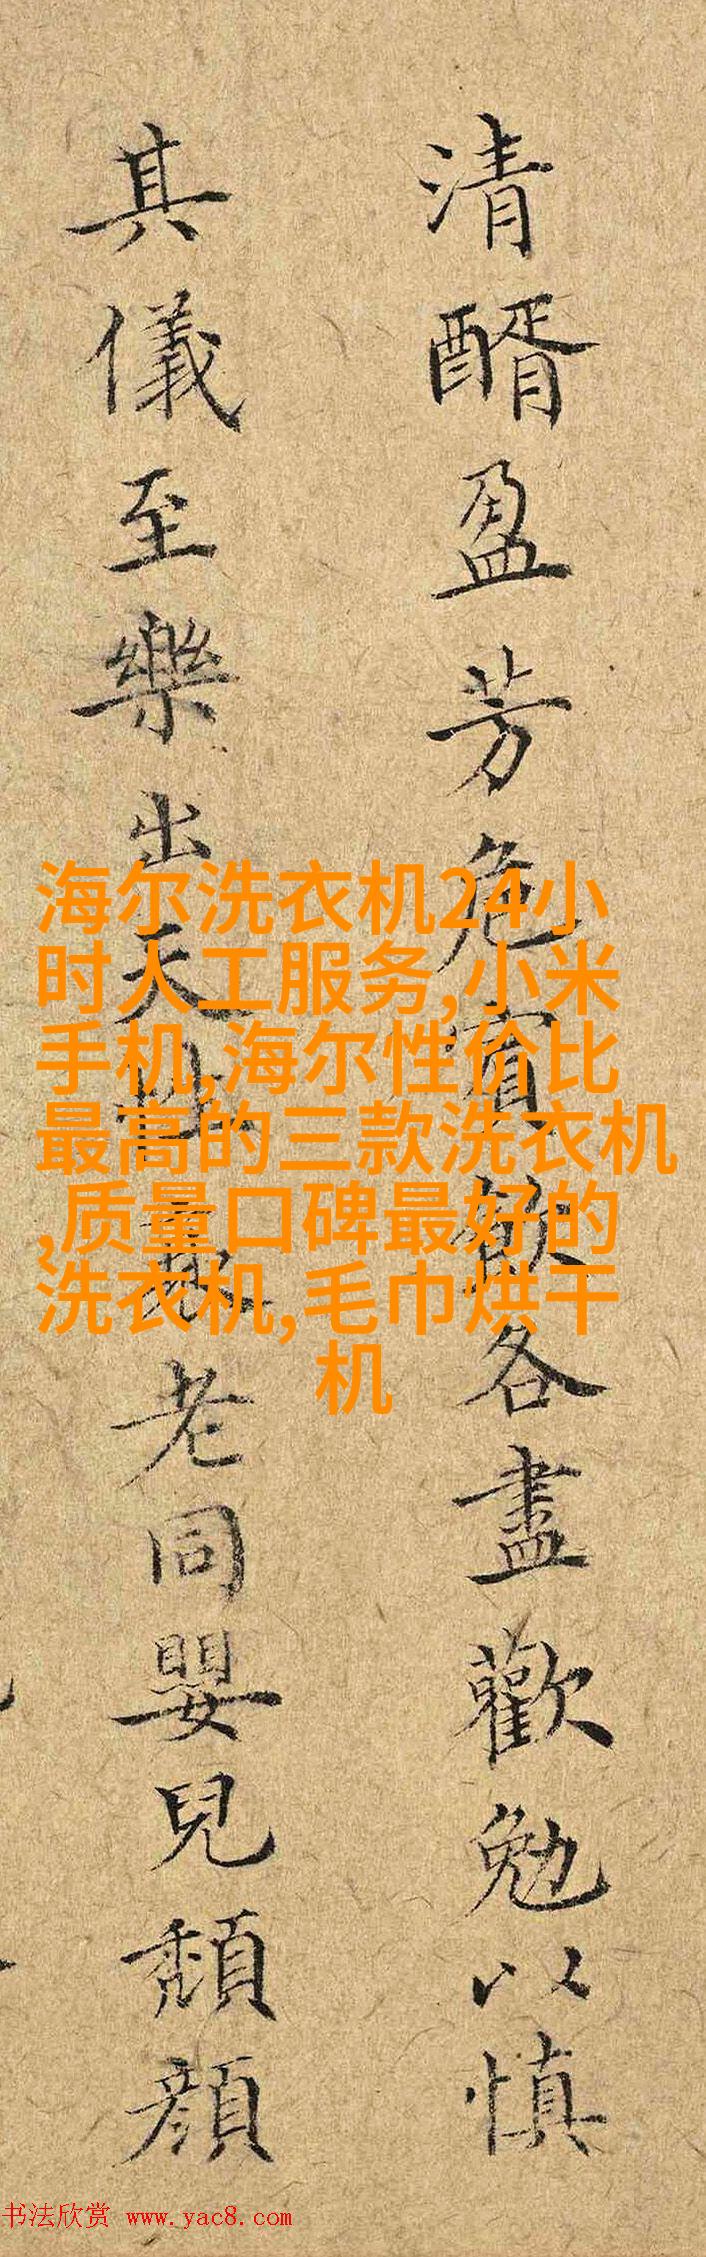 清醑盈芳危賓各盡歡勉以慎
其儀至樂出天性老同嬰兒頹顏
海尔洗衣机24小
时人工服务,小米
手机,海尔性价比
最高的三款洗衣机
,质量口碑最好的
洗衣机,毛巾烘干
机
书法欣赏 www.yac8.com